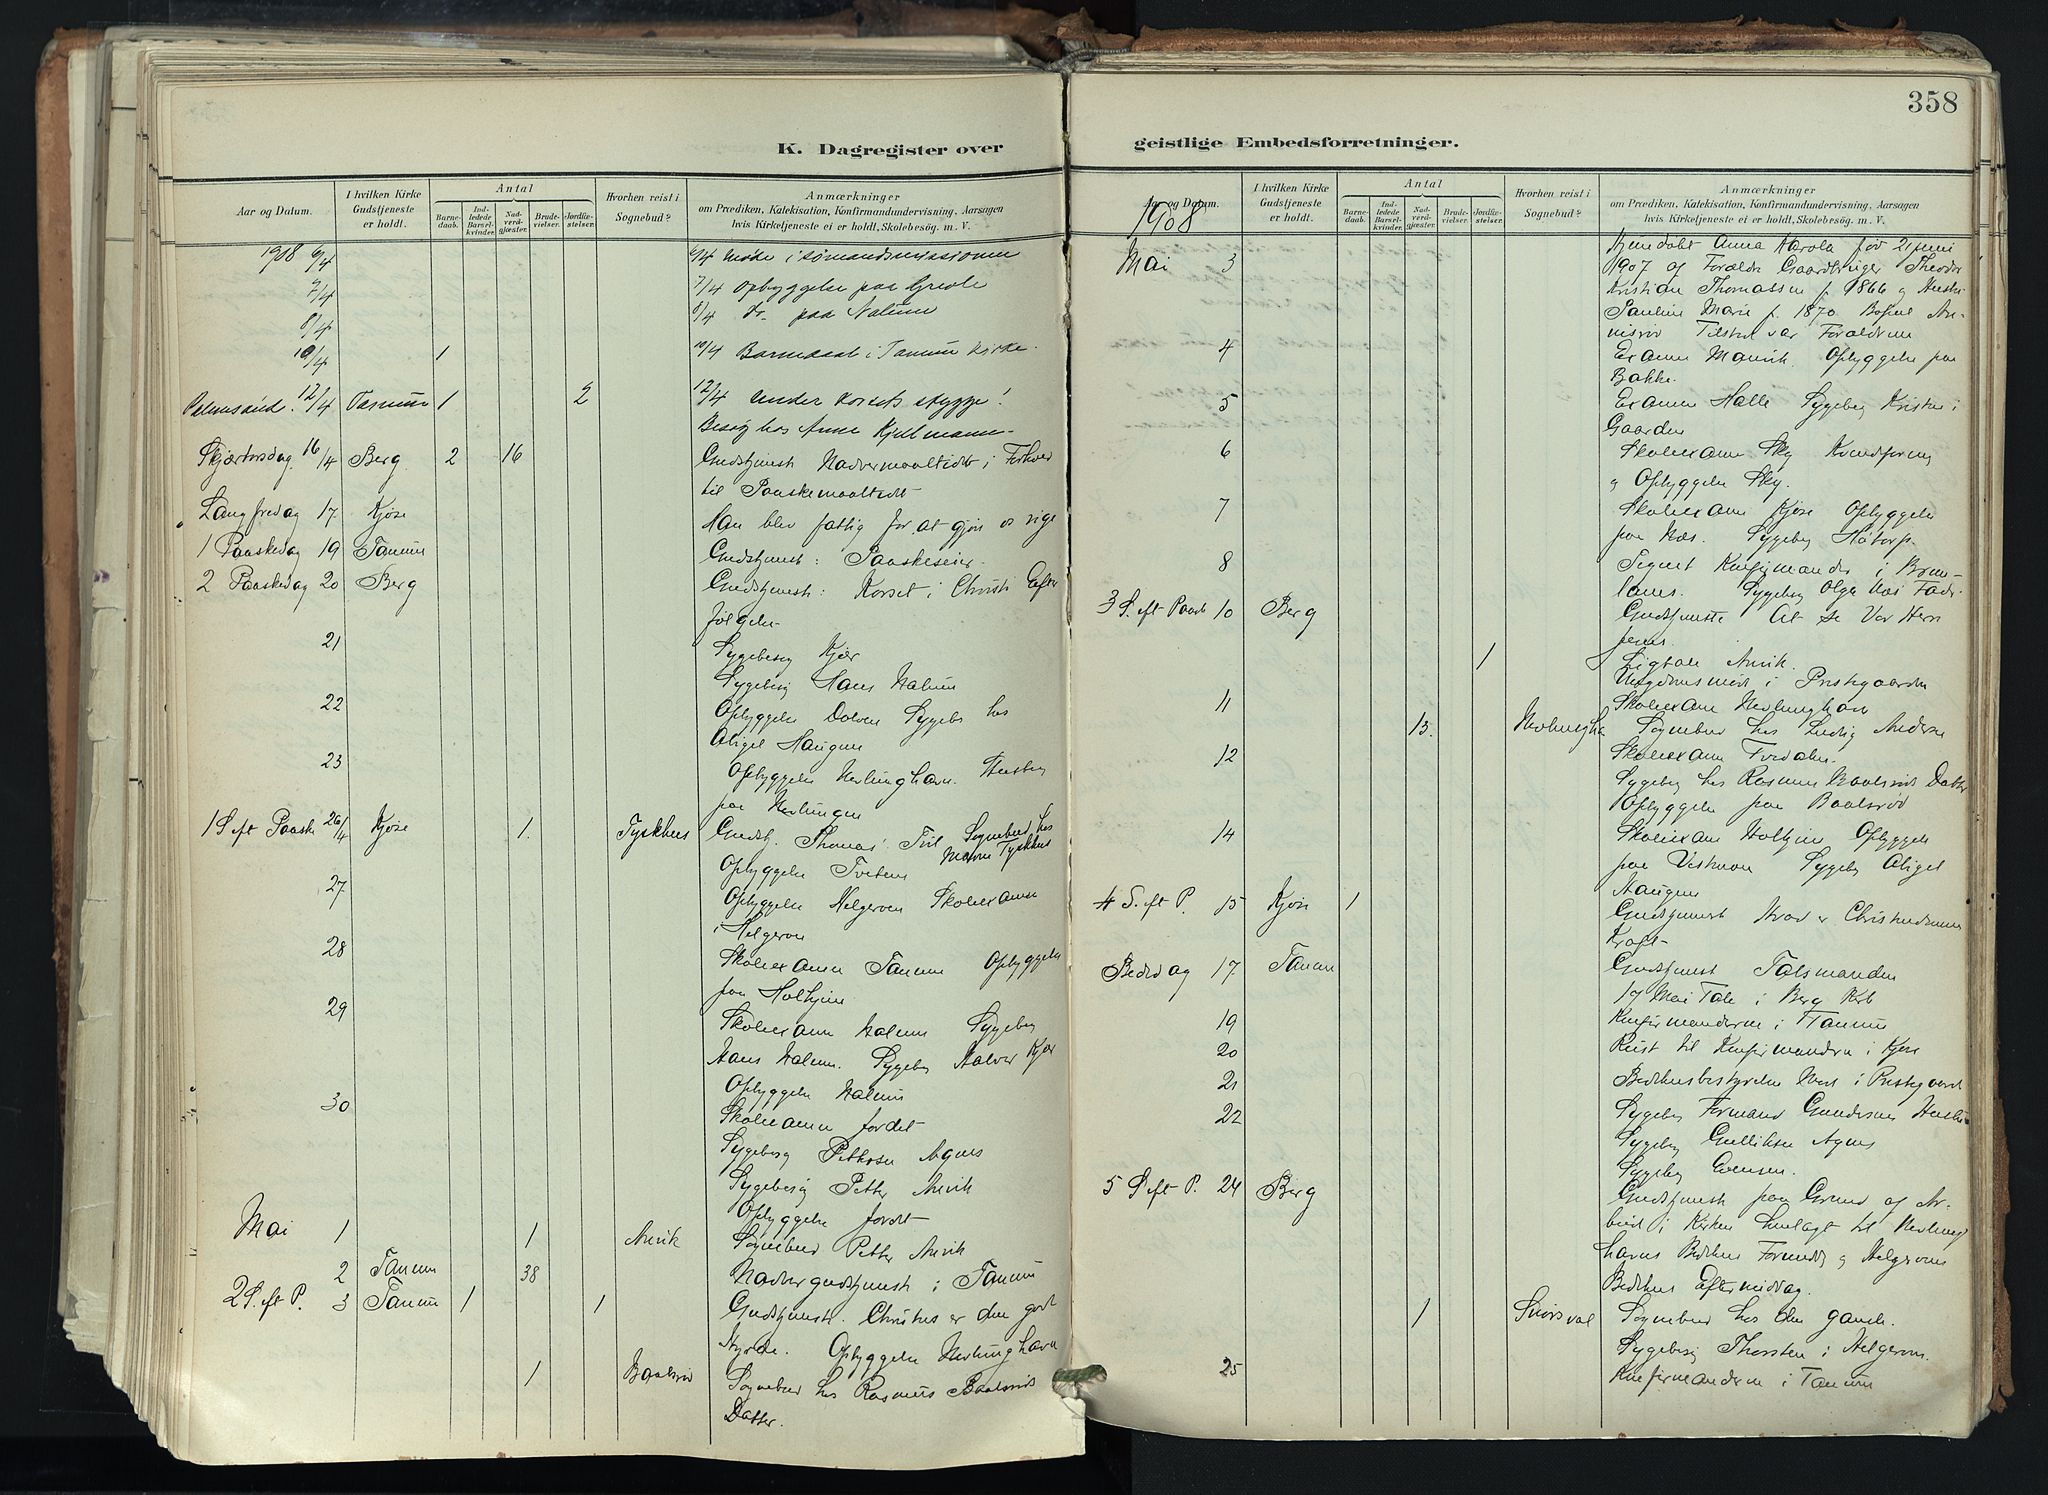 358
K. Dagregister over
geistlige Embedsforretninger.
Aar og Datum.
I hvilken Kirke Gudstjeneste er holdt.
Antal
Barnedaab.
Indledede Barselkvinder.
Nadverdgjæster.
Brudevielser.
Jordfæstelser.
Hvorhen reist i Sognebud?
Anmærkninger
om Prædiken, Katekisation, Konfirmandundervisning, Aarsagen
hvis Kirketjeneste ei er holdt, Skolebesøg. m. V.
1908 6/4 6/4 Møde i sømandsmissionen
7/4 7/4 Opbyggelse paa
8/4 8/4 Do. paa Nalum
10/4 1 10/4 Barnedaab i Tanum Kirke.
Palmesønd. 12/4 Tanum 1 2 12/4 Under Korsets skygge!
Besøg hos Anne Kjellmann
Skjærtorsdag 16/4 Berg 2 16 Gudstjenest Nadvermaaltidet i Forhold
til Paaskemaaltidet
Langfredag 17. Kjose Han blev fattig for at gjøre os rige
1 Paaskedag 19 Tanum Gudstjenest: Paaskeseier.
2 Paaskedag 20 Berg Gudstjenest: Korset i Christi Efter
følgelse
21 Sygebesøg Kjær
Sygebesøg Hans Nalum
22 Opbyggelse Dolven Sygebs hos
Abigel Haugen
23 Opbyggelse Nevlunghavn. Husbesøg
paa Nevlungen
1 S. eft Paaske 26/4 Kjose 1. Tyskhus Gudstj. Thomas' Tvil Sognebud hos
Maren Tyskhus
Opbyggelse Tveten
27 Opbyggelse Helgeroen Skoleexamen
i Helgeroen
28 Skoleexamen Tanum Opbyggelse
paa Holtjern
29 Skoleexamen Nalum Sygebsg
Hans Nalum. Sygebsg Halvor Kjær
Opbyggelse Nalum
30 Skoleexamen Jordet
Sygebesøg Pettersen Agnes
Sygebesøg Petter Anvik
Opbyggelse Jordet
Mai 1 1 Anvik Sognebud Petter Anvik
2 Tanum 38 Nadvergudstjenest i Tanum
2 S. eft P. 3 Tanum 1 1 Gudstjenest. Christus er den gode
Hyrde. Opbyggelse Nevlunghavn
1 Baalsrød Sognebud hos Rasmus Baalsrøds
Datter.
Aar og Datum.
1908
I hvilken Kirke Gudstjeneste er holdt.
Antal
Barnedaab.
Indledede Barselkvinder.
Nadverdgjæster.
Brudevielser.
Jordfæstelser.
Hvorhen reist i Sognebud?
Anmærkninger
om Prædiken, Katekisation, Konfirmandundervisning, Aarsagen
hvis Kirketjeneste ei er holdt, Skolebesøg. m. V.
Hjemdøbt Anna Karola fød 21 juni
Mai 3 1907 af Forældre Gaardbruger Theodor
Kristian Thomassen f. 1866 og Hustru
Pauline Marie f. 1870 Bopæl
Tilsted var Forældrene
4 Examen Manvik. Opbyggelse paa
Bakke.
5 Examen Halle Sygebsg Kristen i
Gaarden
6 Skoleexamen Sky Kvindeforening
og Opbyggelse Sky.
7 Skoleexamen Kjose Opbyggelse
paa Næs. Sygebsg
8 Konfirmander i Brun-
lanes. Sygebsg Olga
3 S. eft Paask 10 Berg Gudstjeneste At se Vor Herre
Jesus.
1 Ligtale Anvik.
Ungdomsmøde i Prestegaarden
11 Skoleexam Nevlunghavn
13. Sognebud hos Ludvig Anderse
12 Skoleexamen Fredalen.
Sygebsg hos Rasmus Baalsrøds Datter
Opbyggelse paa Baalsrød
14 Skoleexam Holtjern Opbyggelse
paa Sygebsg Abigel
Haugen
4 S. eft P. 15 Kjose 1 Gudstjenest Hvad er Christendommens
Kraft
Bededag 17. Tanum Gudstjenest Talsmanden
17 Mai Tale i Berg Kirke
19 Konfirmanderne i Tanum
20 Reist til Konfirmandern i Kjose
21 Bedehusbestyrelse Møde i Prestegaard
22 Sygebsg Formand Gundersens Hustru
Sygebsg Gulliksen Agnes
Sygebsg Evensen.
5 S. eft P. 24 Berg Gudstjenest paa Grund af Ar-
beid i Kirken henlagt til Nevlung
havns Bedehus Formiddg og Helgeroens
Bedehus Eftermiddag.
1 Sognebud hos den gamle.
Sygebesøg Thorsten i Helgeroen.
25 Konfirmanderne i Tanum